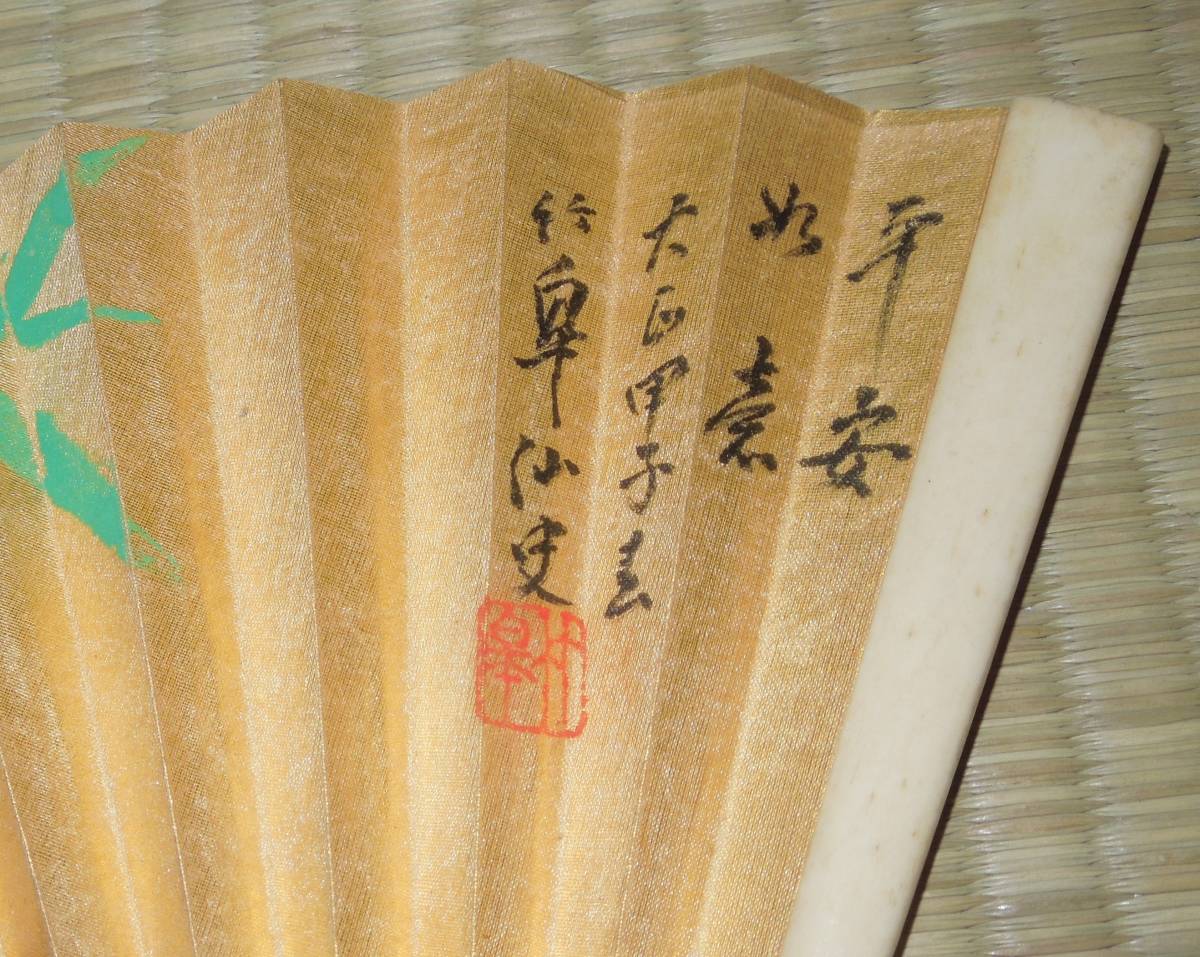 平安
如意
大正甲子春
竹皐仙史